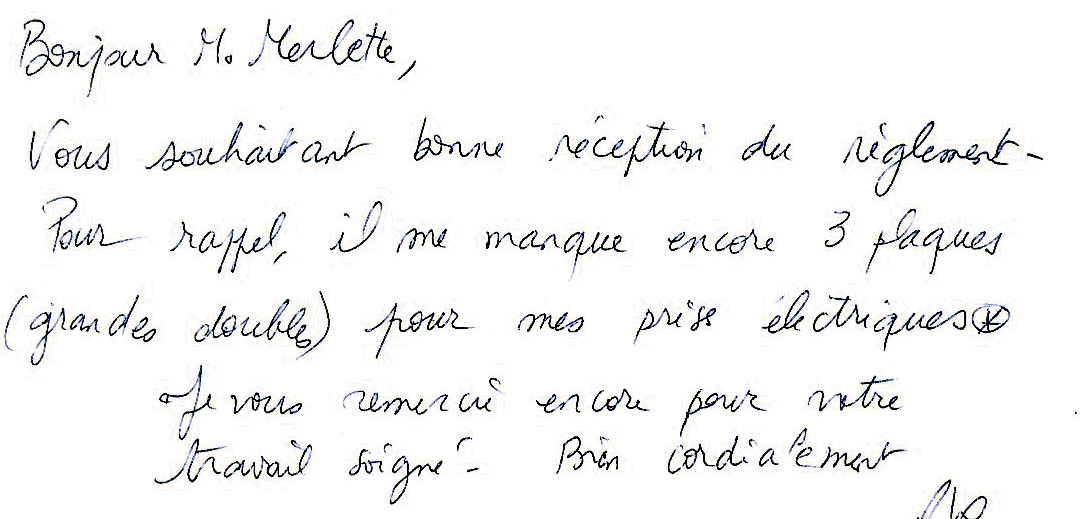 Bonjour M. Merlette,
Vous souhaitant bonne réception du règlement -
Pour rappel, il me manque encore 3 plaques
(grandes doubles) pour mes prises électriques
Je vous remercie encore pour votre
travail soigné - Bien cordialement